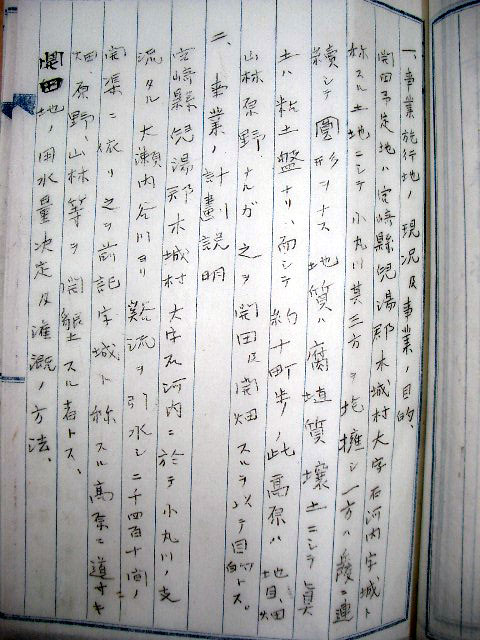 一、事業施行地ノ現況及事業ノ目的、
開田予定地ハ宮崎縣兒湯郡木城村大字石河内字城ト
称スル土地ニシテ小丸川其三方ヲ抱擁シ一方ハ後ニ連
續シテ圓形ヲナス地質ハ腐埴質壤土ニシテ眞
土ハ粘土盤ナリ、而シテ約十町歩ノ此高原ハ地目畑
山林原野ナルガ之ヲ開田及開畑スルヲ以テ目的トス。
二、事業ノ計劃説明
宮崎縣兒湯郡木城村大字石河内ニ於テ小丸川ノ支
流タル大瀬内谷川ヨリ谿流ヲ引水シ二千四百十間ノ
開渠ニ依リ之ヲ前記字城ト称スル高原ニ導サキ
畑、原野、山林等ヲ開墾スル者トス、
開田地ノ用水量決定及灌漑ノ方法、